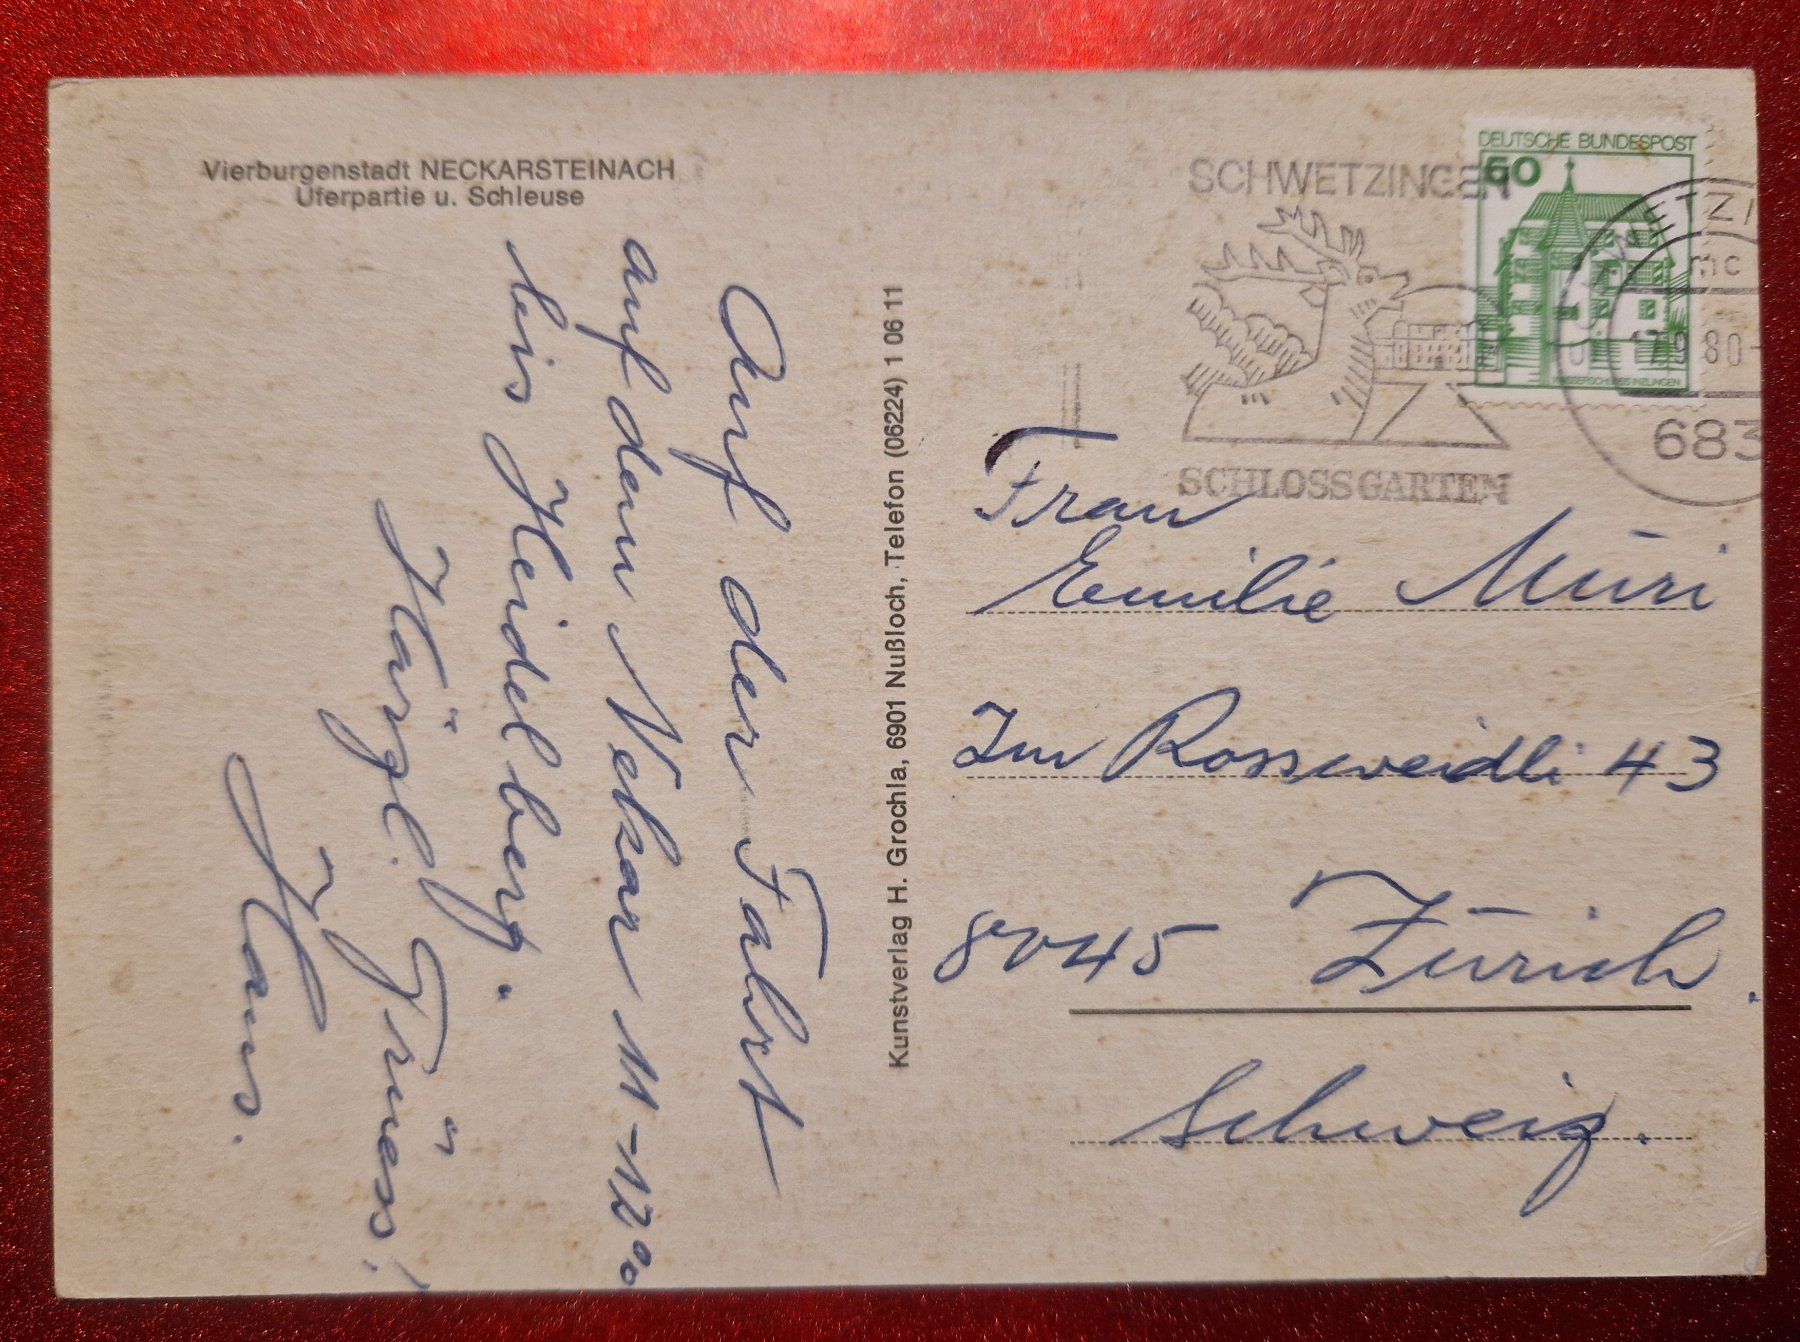 Vierburgenstadt NECKARSTEINACH
Uferpartie u. Schleuse
Auf der Fahrt
auf dem Nekar 11-12⁰⁰
bis Heidelberg.
Härzl. Grüess!
Hans.
Kunstverlag H. Grochla, 6901 Nußloch, Telefon (06224) 1 06 11
SCHWETZINGEN
SCHLOSSGARTEN
DEUTSCHE BUNDESPOST
60
WASSERSCHLOSS INZLINGEN
ETZI
mc
80
683
Frau
Emilie Müri
Im Rossweidli 43
8045 Zürich.
Schweiz.